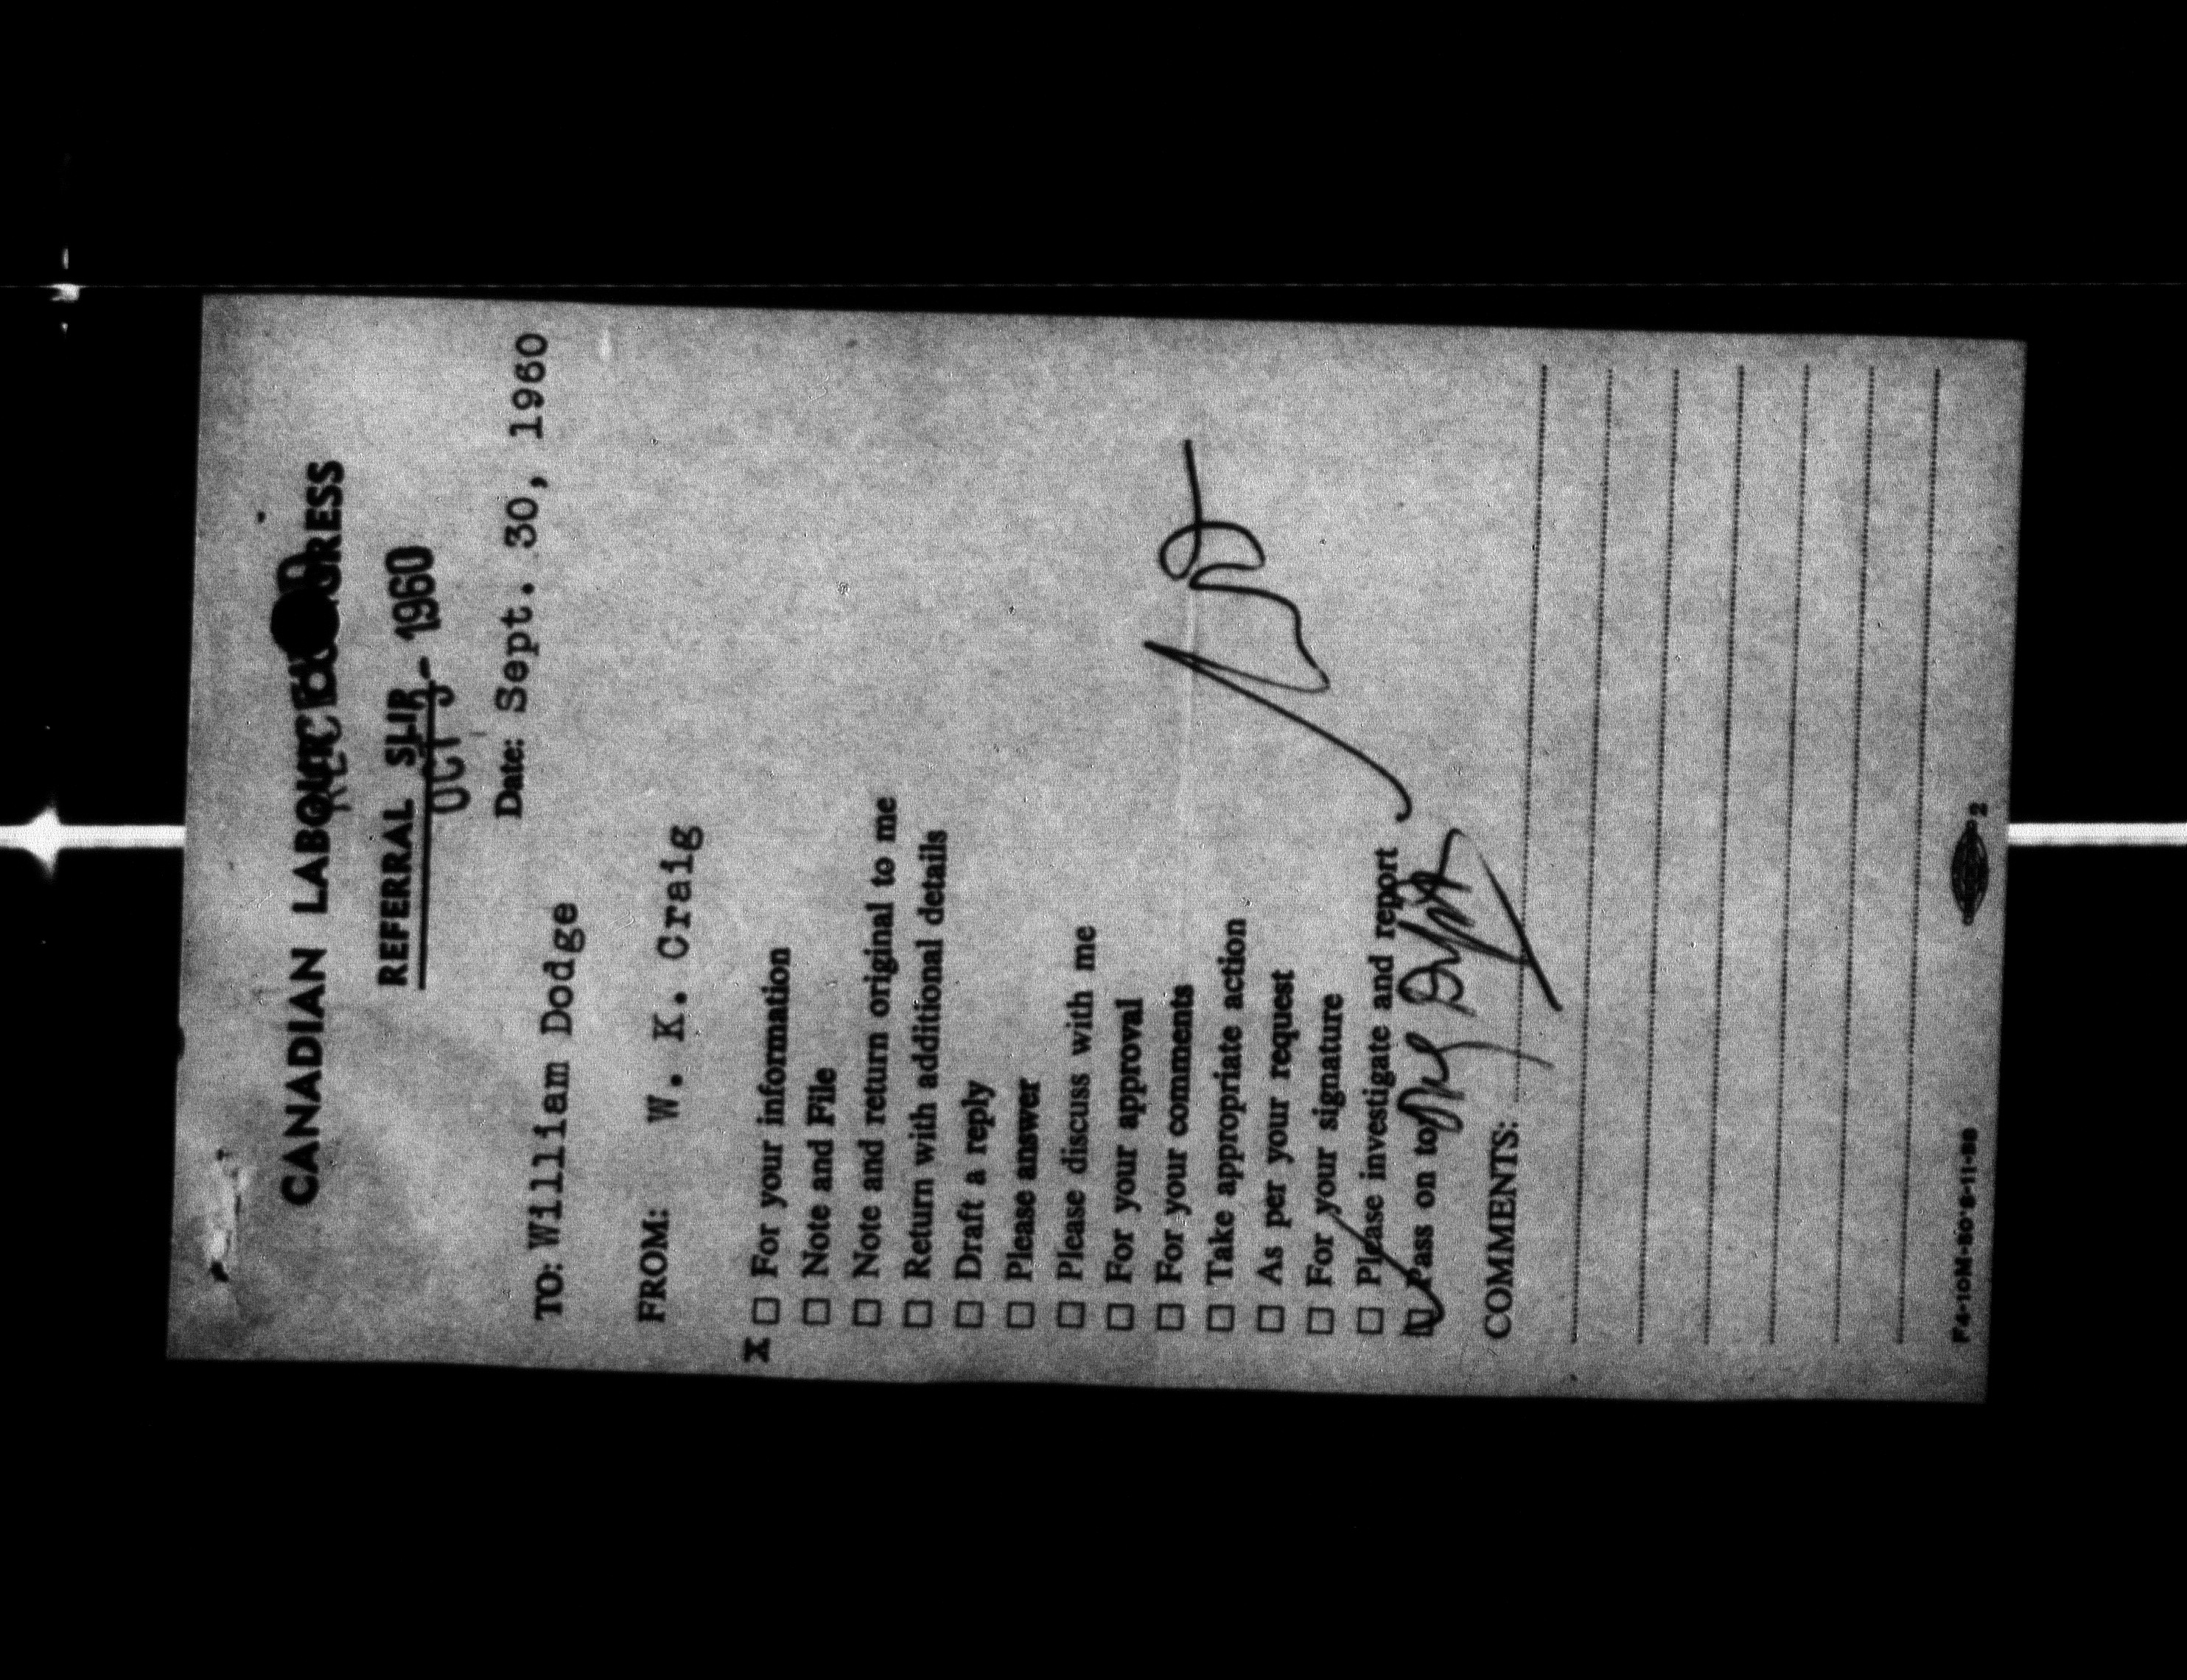 CANADIAN LABOUR CONGRESS
RECEIVED
REFERRAL SLIP
OCT 3 - 1960
Date: Sept. 30, 1960
TO: William Dodge
FROM: W. K. Craig
X ☐ For your information
☐ Note and File
☐ Note and return original to me
☐ Return with additional details
☐ Draft a reply
☐ Please answer
☐ Please discuss with me
☐ For your approval
☐ For your comments
☐ Take appropriate action
☐ As per your request
☐ For your signature
☐ Please investigate and report
☐ Pass on to Org Dept
COMMENTS:
2